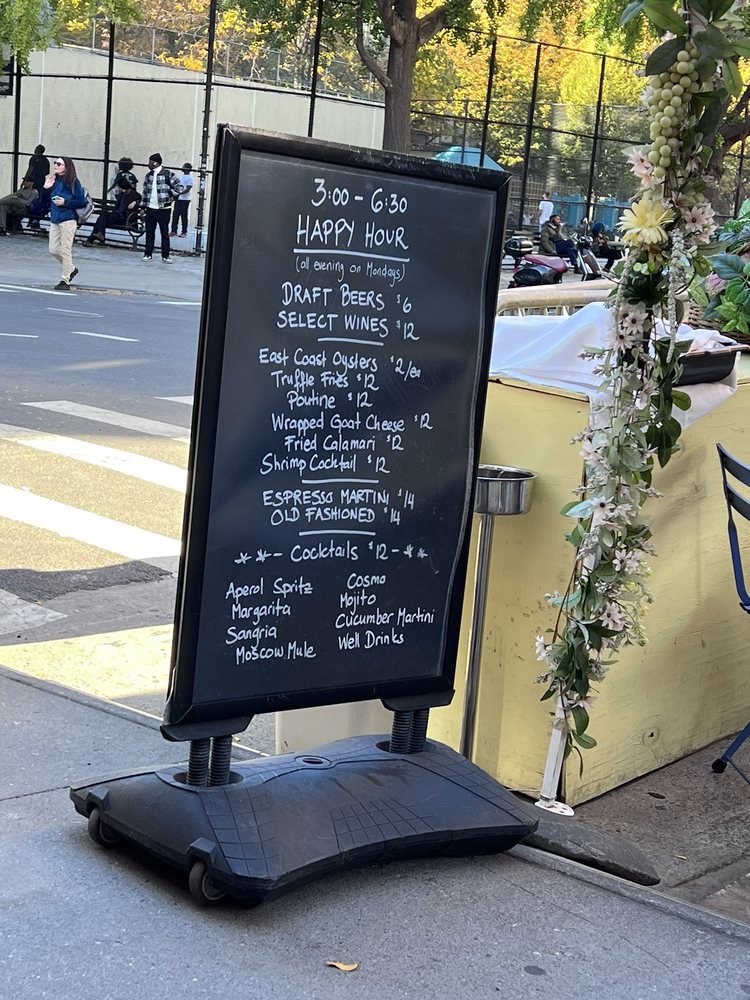 3:00 - 6:30
HAPPY HOUR
(all evening on Mondays)
DRAFT BEERS $6
SELECT WINES $12
East Coast Oysters $2/ea
Truffle Fries $12
Poutine $12
Wrapped Goat Cheese $12
Fried Calamari $12
Shrimp Cocktail $12
ESPRESSO MARTINI $14
OLD FASHIONED $14
**- Cocktails $12 -**
Aperol Spritz
Margarita
Sangria
Moscow Mule
Cosmo
Mojito
Cucumber Martini
Well Drinks